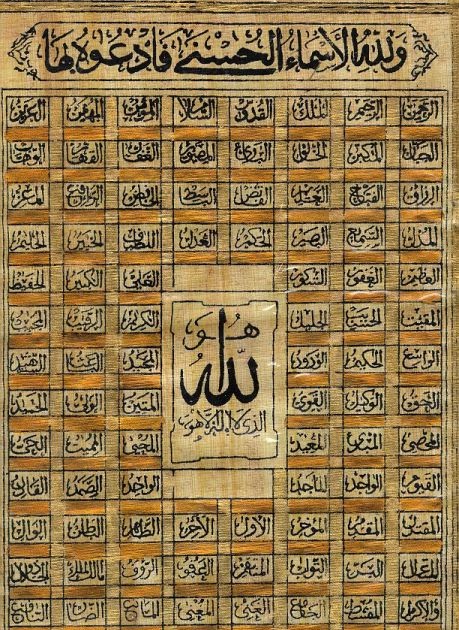 ولله الأسماء الحسنى فادعوه بها
الرحمن الرحيم الملك القدوس السلام المؤمن المهيمن العزيز
الجبار المتكبر الخالق البارئ المصور الغفار القهار الوهاب
الرزاق الفتاح العليم القابض الباسط الخافض الرافع المعز
المذل السميع البصير الحكم العدل اللطيف الخبير الحليم
العظيم الغفور الشكور العلي الكبير الحفيظ
المقيت الحسيب الجليل الكريم الرقيب المجيب
هو
الله
الذي لا إله إلا هو
الواسع الحكيم الودود المجيد الباعث الشهيد
الحق الوكيل القوي المتين الولي الحميد
المحصي المبدئ المعيد المحيي المميت الحي
القيوم الواجد الماجد الواحد الصمد القادر
المقتدر المقدم المؤخر الأول الآخر الظاهر الباطن الوالي
المتعال البر التواب المنتقم العفو الرؤوف مالك الملك ذو الجلال
والإكرام المقسط الجامع الغني المغني المانع الضار النافع